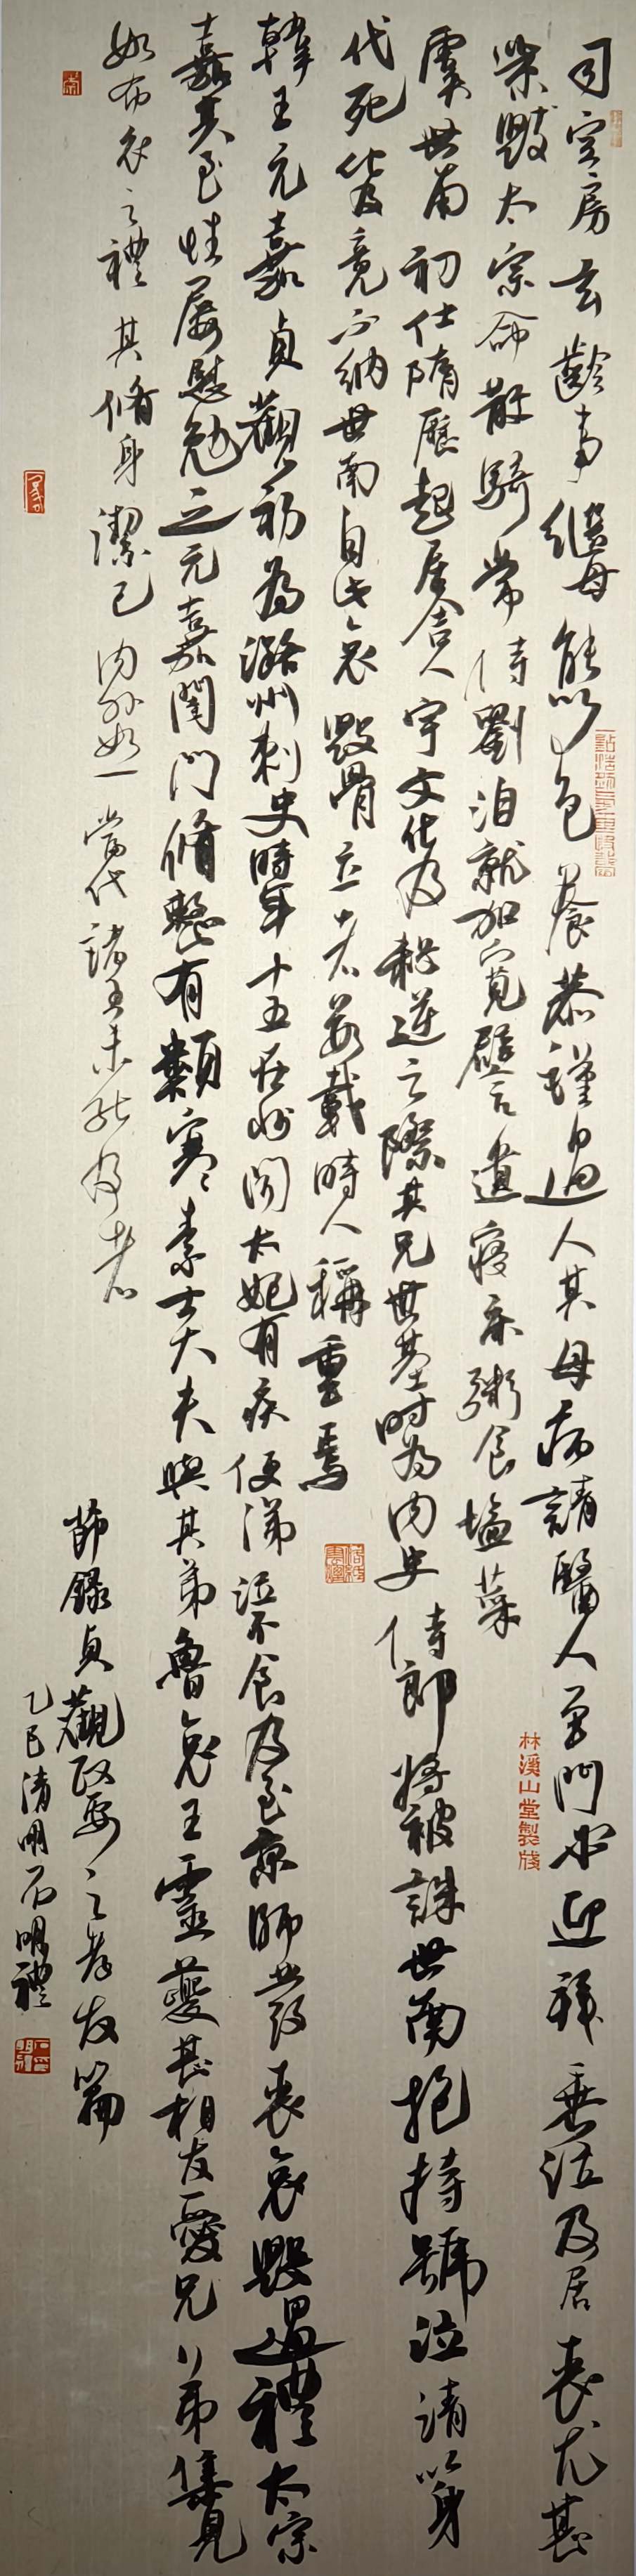 司空房玄齡事繼母能以色養恭謹過人其母病請醫人至門必迎拜垂泣及居喪尤甚
柴毀太宗命散騎常侍劉洎就加寬譬遺寢床粥食鹽菜
虞世南初仕隋歷起居舍人宇文化及弒逆之際其兄世基時為內史侍郎將被誅世南抱持號泣請以身
代死化及竟不納世南自此哀毀骨立者數載時人稱重焉
韓王元嘉貞觀初為潞州刺史時年十五在州聞太妃有疾便涕泣不食及至京師發喪哀毀過禮太宗
嘉其至性屢慰勉之元嘉閨門脩整有類寒素士大夫與其弟魯哀王靈夔甚相友愛兄弟集見
如布衣之禮其脩身潔己內外如一當代諸王未能及者
節錄貞觀政要之孝友篇
乙巳清明石明禮
林溪山堂製牋